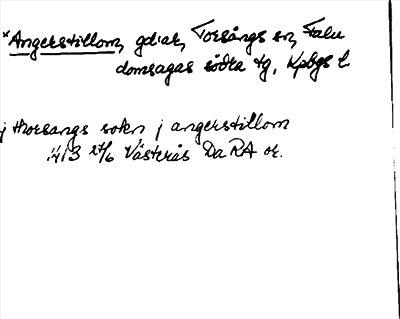 *Angerstillom, gd:ar, Torsångs sn, Falu
domsagas södra tg, Kpbgs l.
j thorsangs sokn j angerstillom
1413 27/6 Västerås Da RA or.